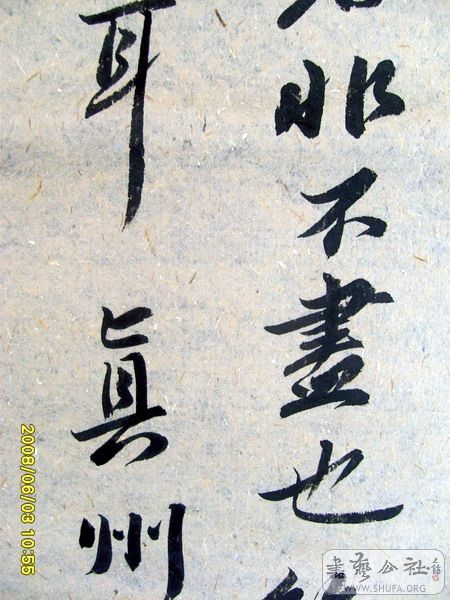 非不盡也
耳真州
2008/06/03 10:55
書藝公社
WWW.SHUFA.ORG